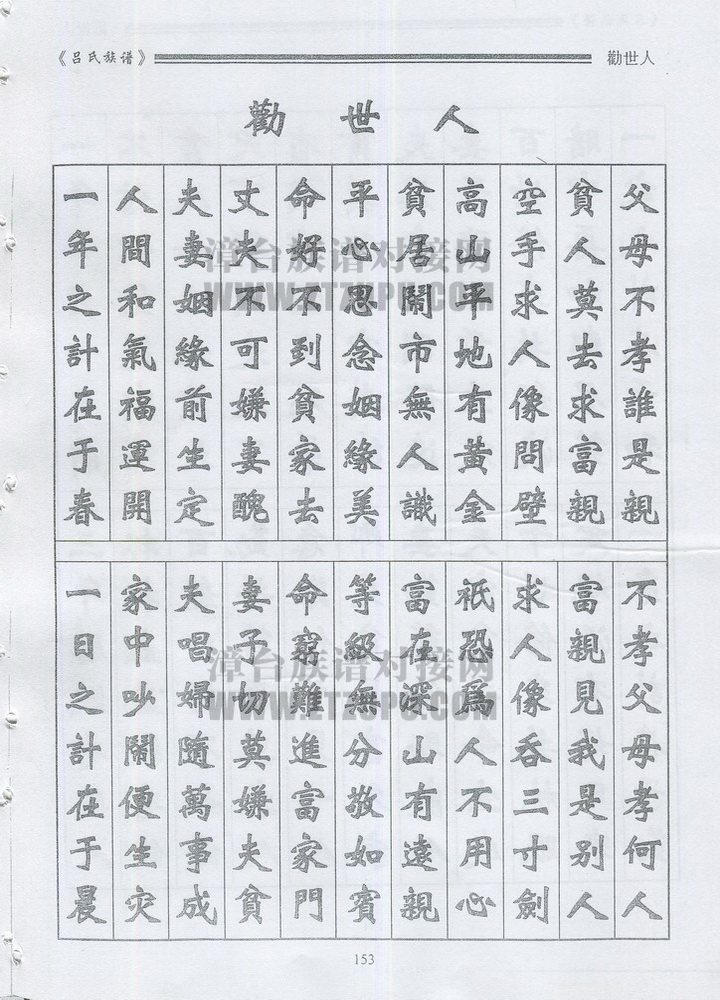 《吕氏族谱》
勸世人
勸世人
父母不孝誰是親
不孝父母孝何人
貧人莫去求富親
富親見我是別人
空手求人像問壁
求人像吞三寸劍
高山平地有黃金
祇恐爲人不用心
貧居鬧市無人識
富在深山有遠親
平心思念姻緣美
等級無分敬如賓
命好不到貧家去
命窮難進富家門
丈夫不可嫌妻醜
妻子切莫嫌夫貧
夫妻姻緣前生定
夫唱婦隨萬事成
人間和氣福運開
家中吵鬧便生灾
一年之計在于春
一日之計在于晨
漳台族谱对接网
WWW.ZTZUPU.COM
漳台族谱对接网
WWW.ZTZUPU.COM
153